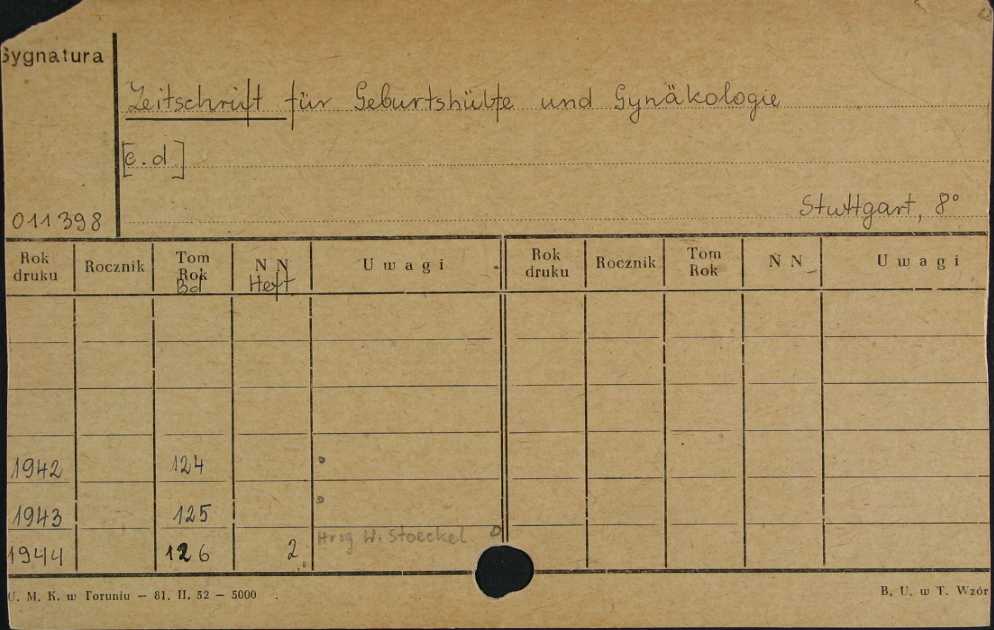 Sygnatura
Zeitschrift für Geburtshülfe und Gynäkologie
[c.d]
011398
Stuttgart, 8°
Rok druku Rocznik Tom Rok Bd N N Heft Uwagi Rok druku Rocznik Tom Rok N N Uwagi
1942 124
1943 125
1944 126 2 Hrsg W. Stoeckel
U. M. K. w Toruniu — 81. II. 52 — 5000
B. U. w T. Wzór